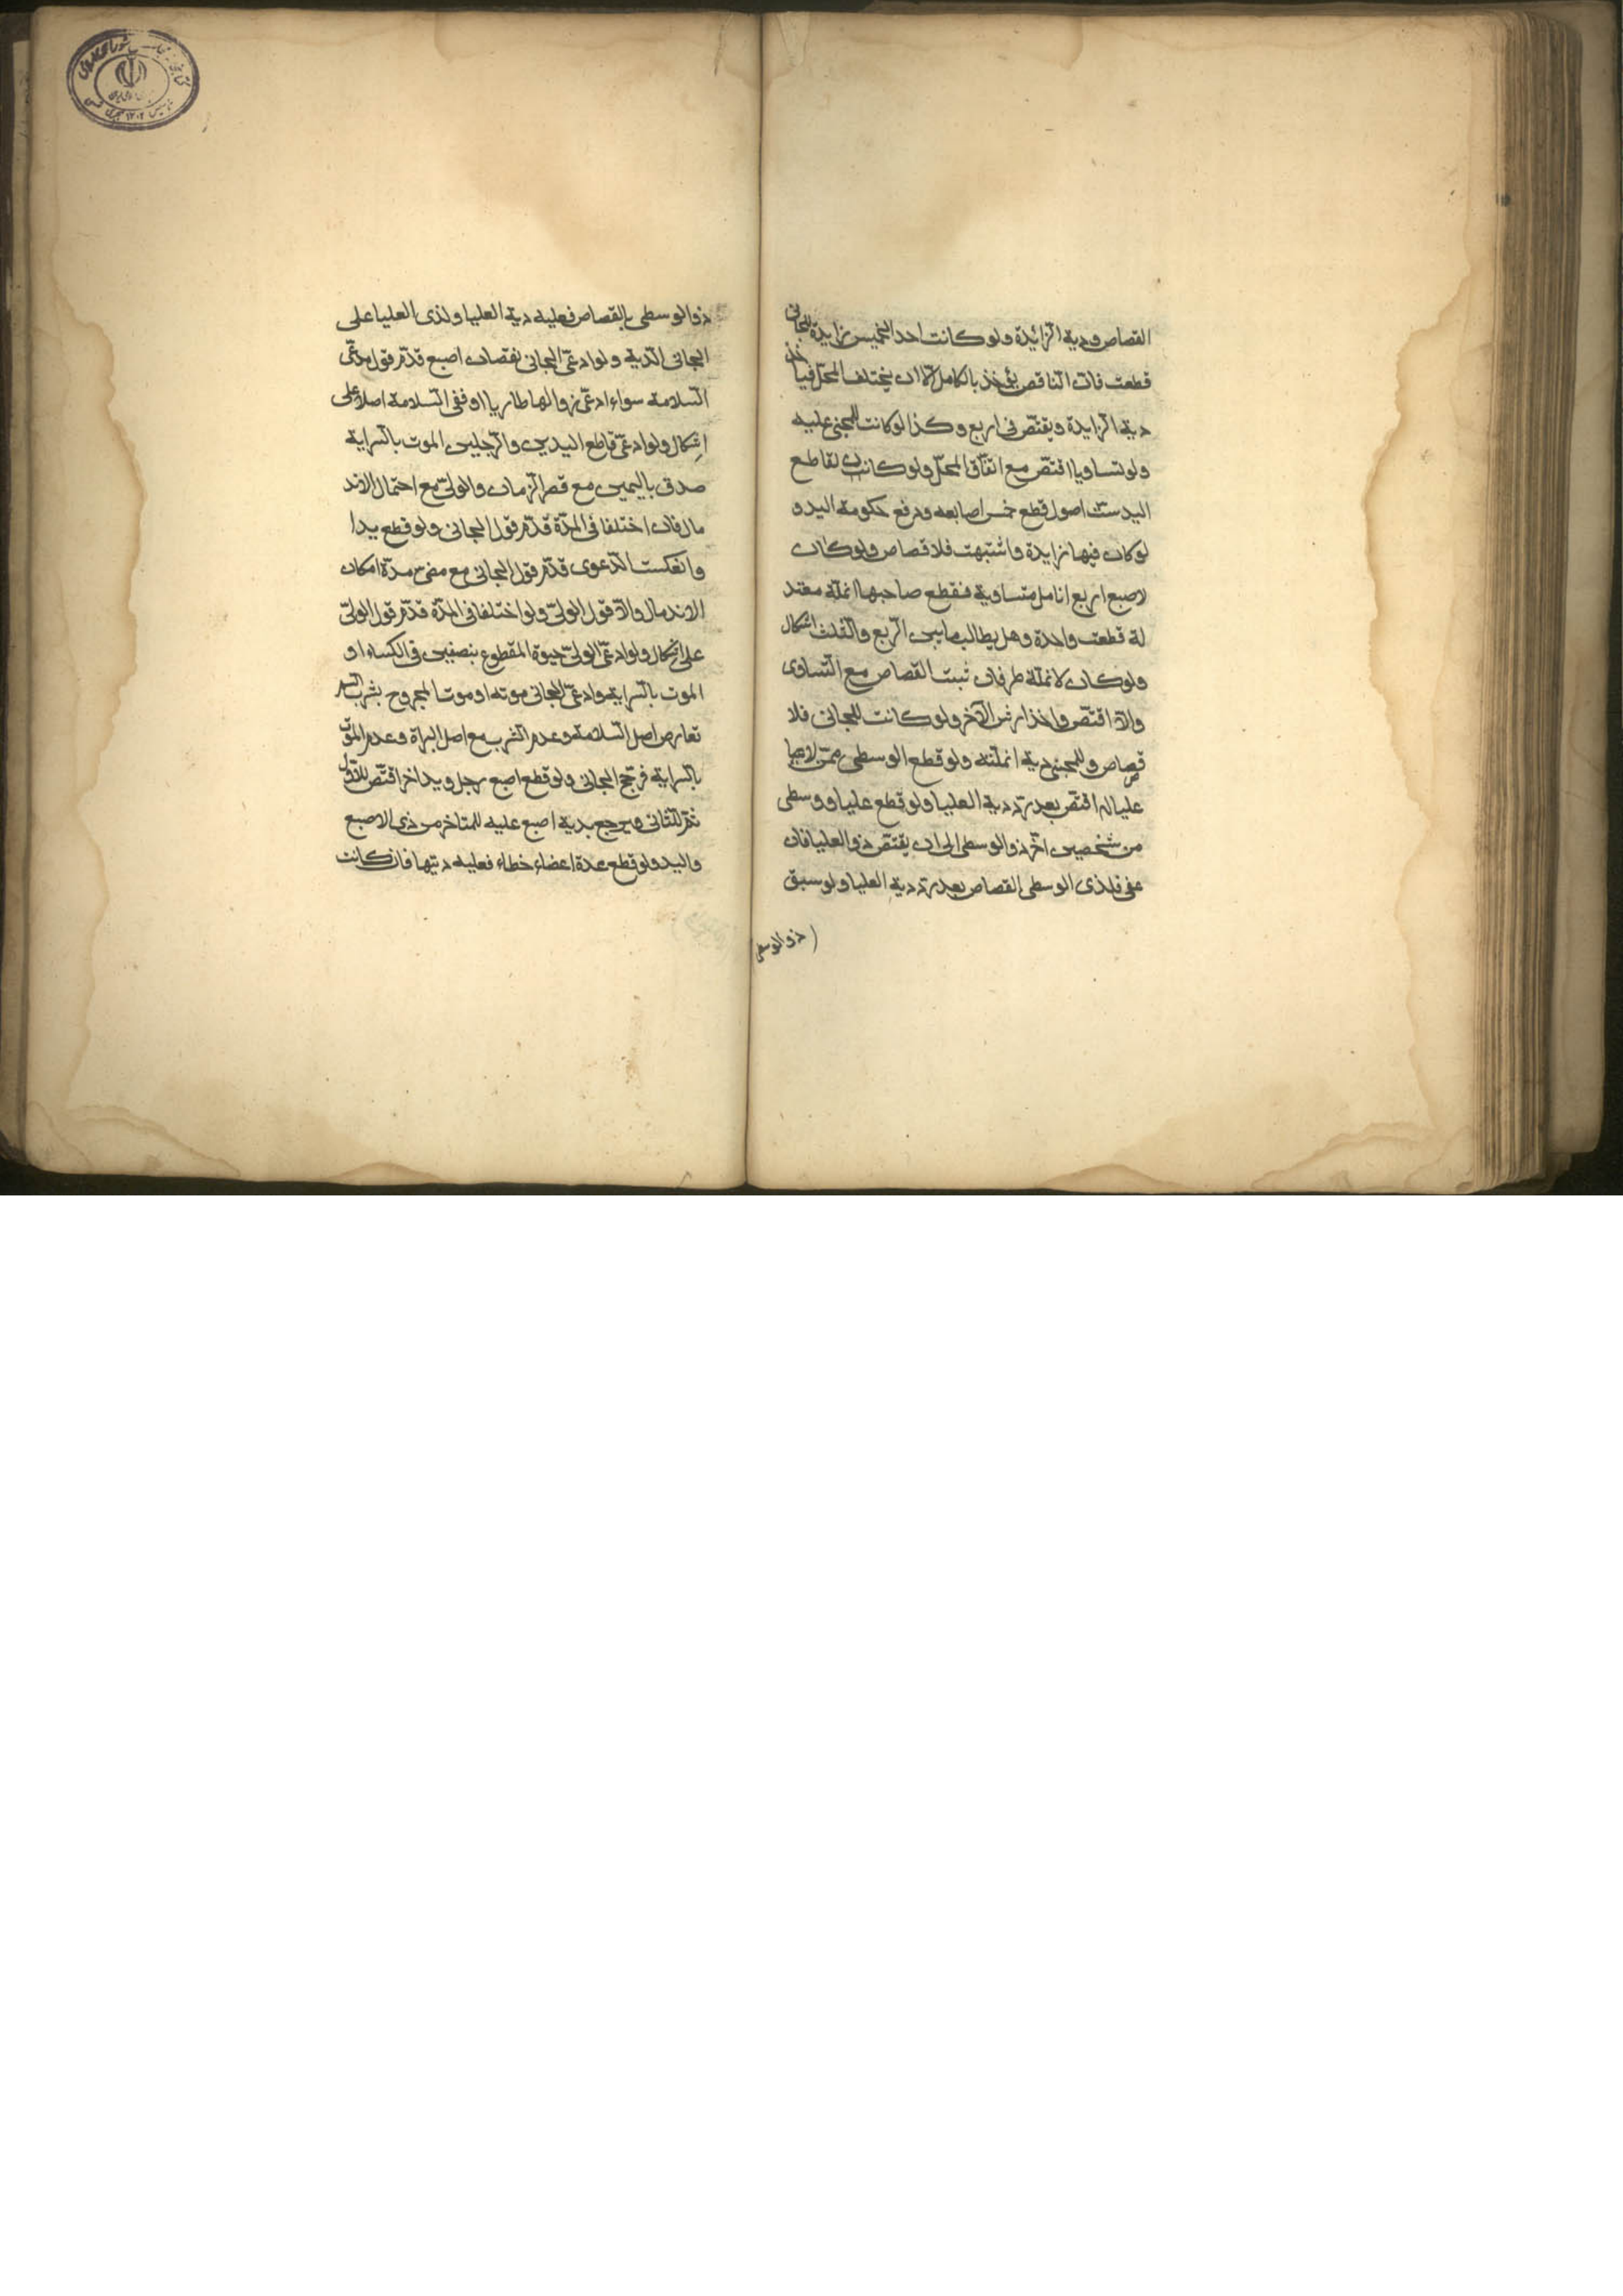 القصاص ودية الزائدة ولو كانت احد الخميس زايدة للجاني
قطعت فان الناقص يؤخذ بالكامل الا ان يختلف المحل فياخذ
دية الزايدة ويقتص في اربع وكذا لو كانت للمجني عليه
ولو تساويا اقتص مع اتفاق المحل ولو كانت لقاطع
اليد ست اصول قطع خمس اصابعه ودفع حكومة اليد و
لو كان فيها زايدة واشتبهت فلا قصاص ولو كان
لاصبع اربع انامل متساوية فقطع صاحبها انملة معتد
لة قطعت واحدة وهل يطالب بما بين الربع والثلث اشكال
ولو كان لانملة طرفان ثبت القصاص مع التساوى
والا اقتص واخذ ارش الآخر ولو كانت للجاني فلا
قصاص وللمجني دية انملته ولو قطع الوسطى ممن لا
عليا له اقتص بعد رد دية العليا ولو قطع عليا ووسطى
من شخصين اخر ذو الوسطى الى ان يقتص ذو العليا فان
عفى فلذى الوسطى القصاص بعد رد دية العليا ولو سبق
ذو الوسطى
ذو الوسطى بالقصاص فعليه دية العليا ولذى العليا على
الجاني الدية ولو ادعى الجاني نقصان اصبع قدم قول مدعى
السلامة سواء ادعى زوالها طاريا او نفى السلامة اصلا على
اشكال ولو ادعى قاطع اليدين والرجلين الموت بالسراية
صدق باليمين مع قصر الزمان والولي مع احتمال الاند
مال فان اختلفا في المدة قدم قول الجاني ولو قطع يدا
وانعكست الدعوى قدم قول الجاني مع مضى مدة امكان
الاندمال والا قول الولي ولو اختلفا في المدة قدم قول الولي
على اشكال ولو ادعى الولي حيوة المقطوع بنصفين في الكساء او
الموت بالسراية وادعى الجاني موته او موت المجروح بشرب السم
تعارض اصل السلامة وعدم الشرب مع اصل البراة وعدم الموت
بالسراية فرجح الجاني ولو قطع اصبع رجل ويد اخر اقتص للاول
ثم للثاني ويرجع بدية اصبع عليه للمتاخر من ذي الاصبع
واليد ولو قطع عدة اعضاء خطاء فعليه ديتها فان كانت